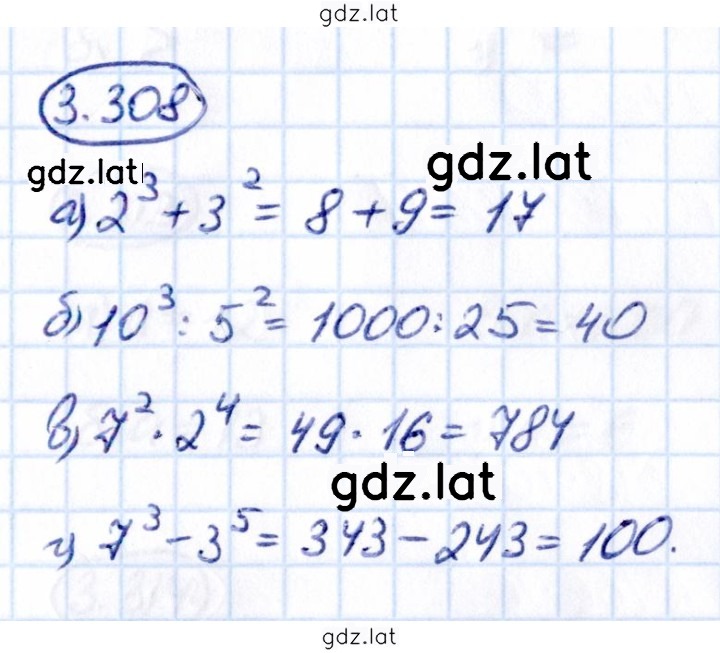 gdz.lat
3.308
gdz.lat
gdz.lat
а) 2³ + 3² = 8 + 9 = 17
б) 10³ : 5² = 1000 : 25 = 40
в) 7² · 2⁴ = 49 · 16 = 784
gdz.lat
г) 7³ - 3⁵ = 343 - 243 = 100.
gdz.lat